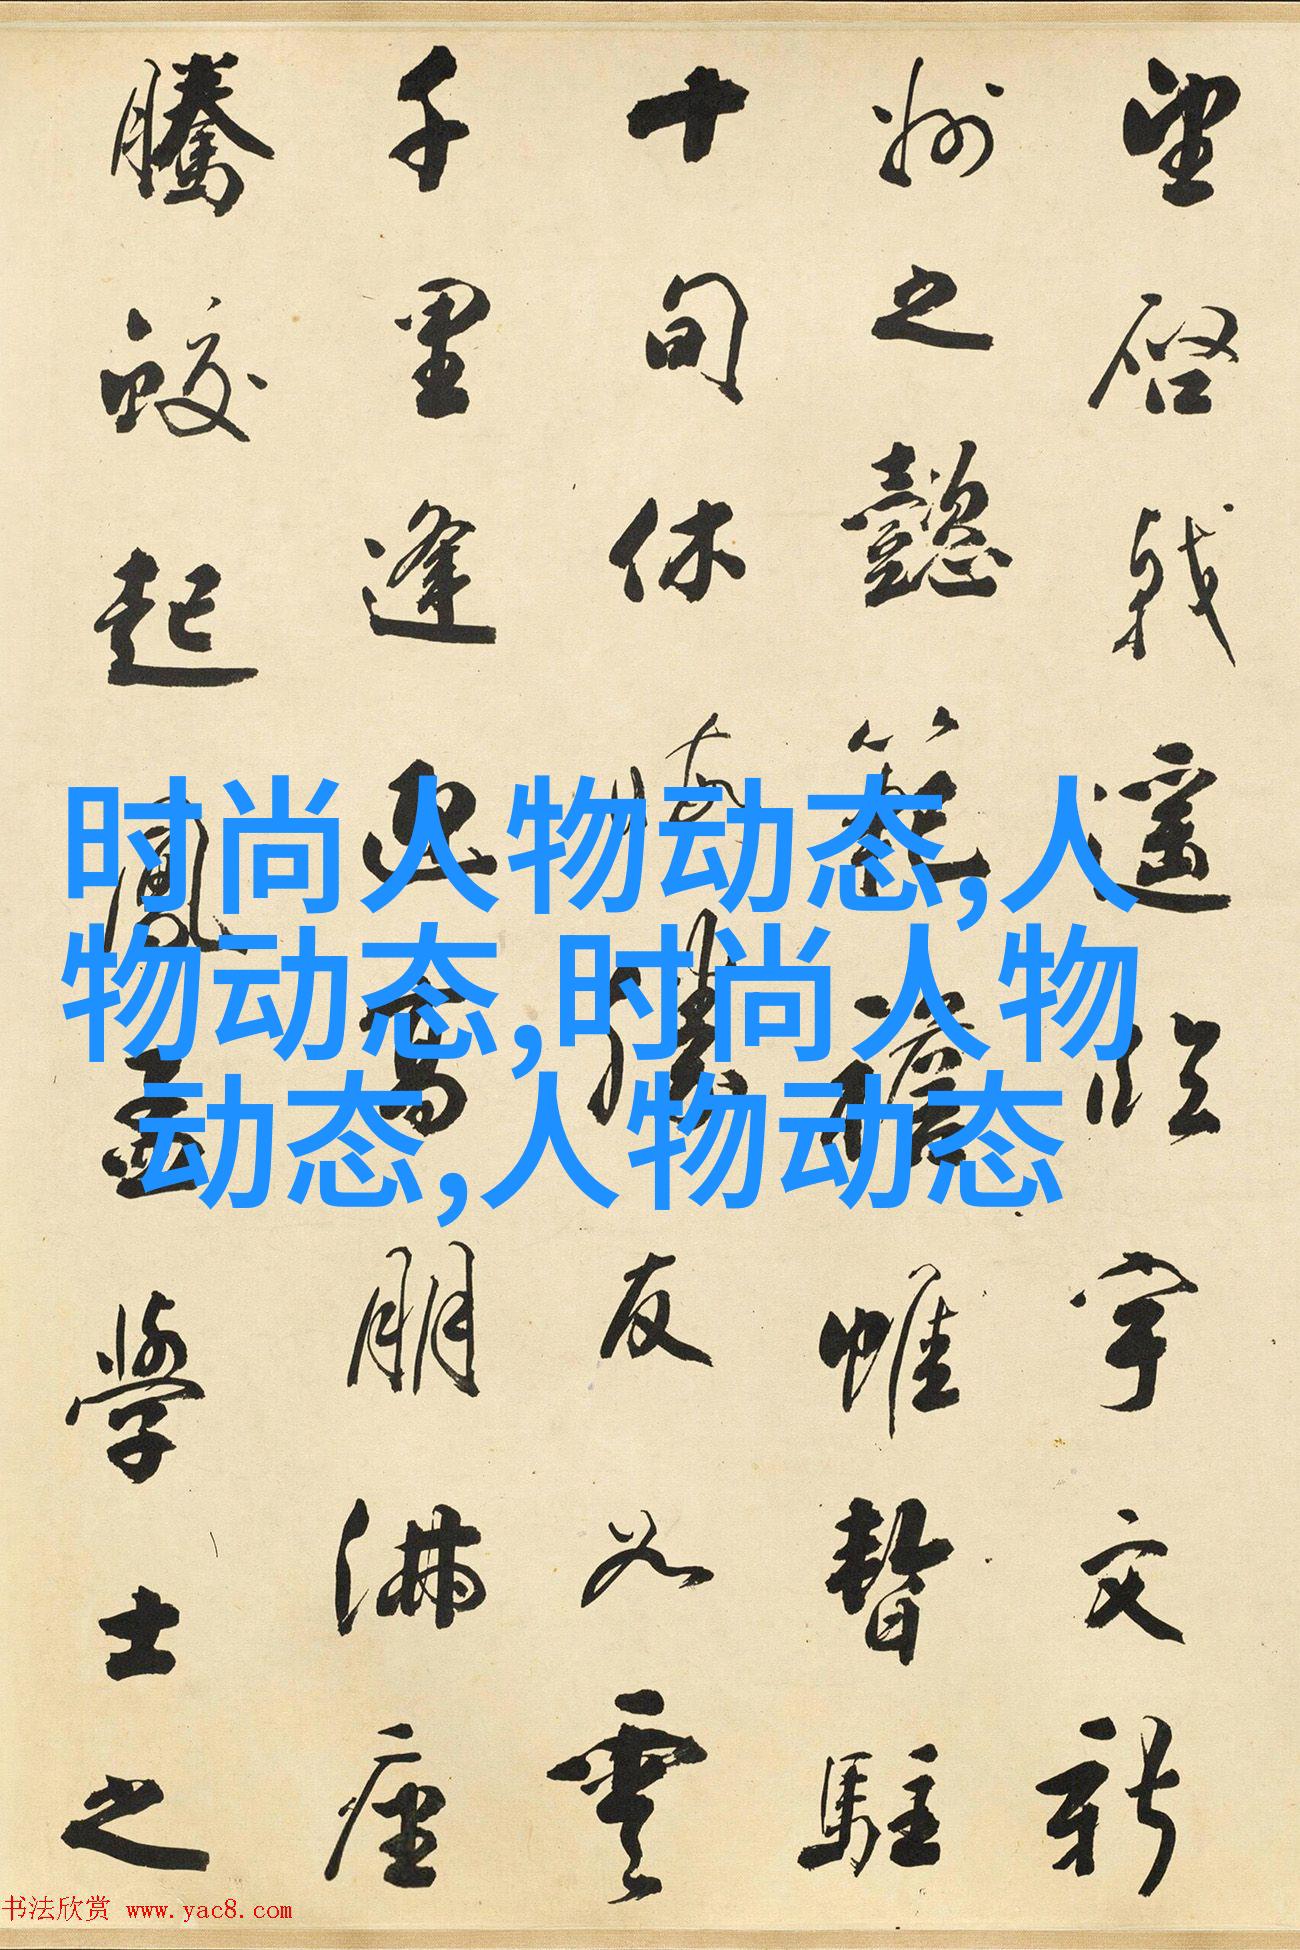 望啓戟遥临宇文新
州之懿範襜帷暫駐
十旬休暇勝友如雲
千里逢迎高朋满座
騰蛟起鳳孟學士之
时尚人物动态,人
物动态,时尚人物
动态,人物动态
书法欣赏 www.yac8.com